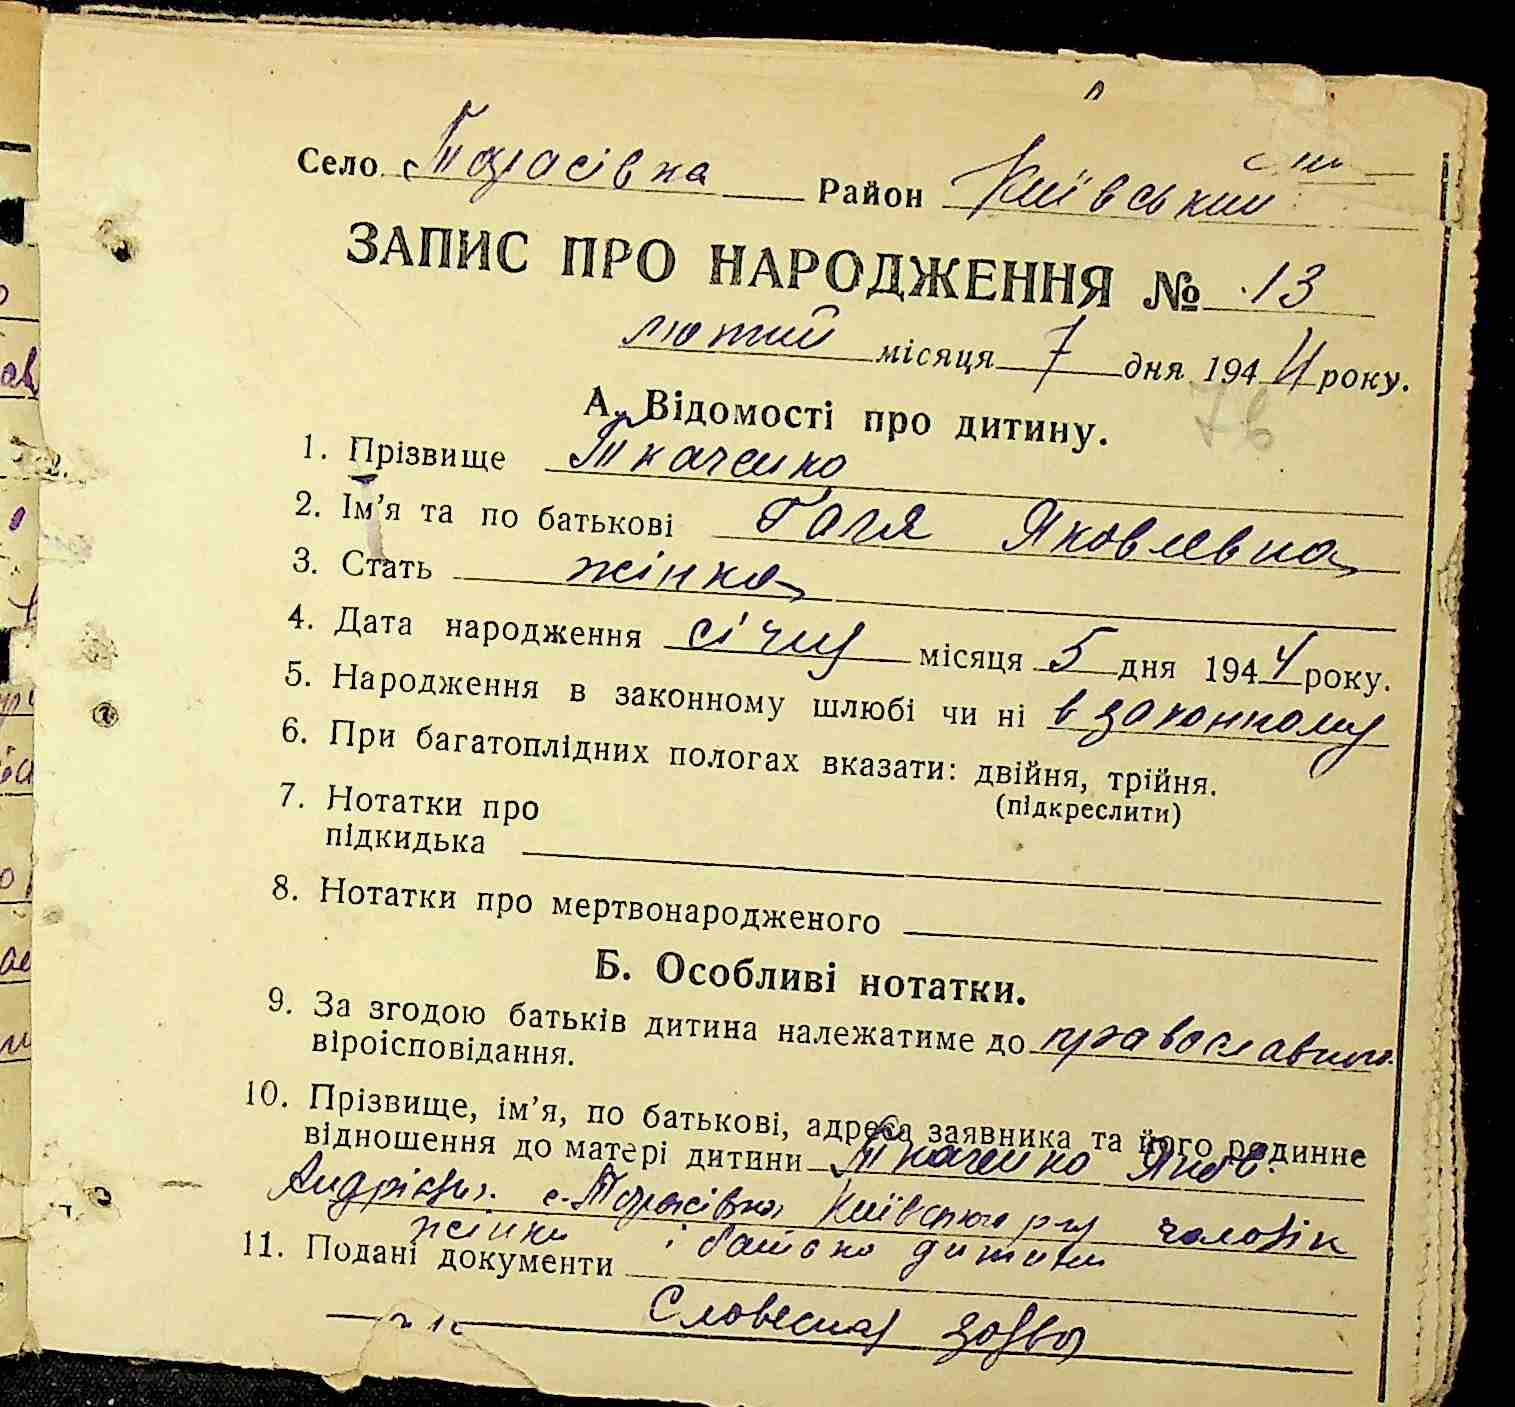 Село с Тарасівка Район Київський
ЗАПИС ПРО НАРОДЖЕННЯ № 13
лютий місяця 7 дня 1944 року.
А. Відомості про дитину.
1. Прізвище Ткаченко
2. Ім'я та по батькові Галя Яковлевна
3. Стать жінка
4. Дата народження січня місяця 5 дня 1944 року.
5. Народження в законному шлюбі чи ні в законному
6. При багатоплідних пологах вказати: двійня, трійня.
(підкреслити)
7. Нотатки про
підкидька
8. Нотатки про мертвонародженого
Б. Особливі нотатки.
9. За згодою батьків дитина належатиме до православного
віроісповідання.
10. Прізвище, ім'я, по батькові, адреса заявника та його родинне
відношення до матері дитини Ткаченко Яков
с. Тарасівка Київського р-ну чоловік
жінки і батько дитини
11. Подані документи
Словесная заява